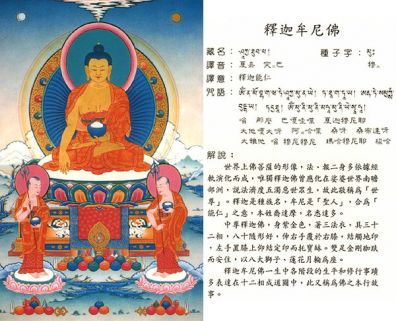 釋迦牟尼佛
藏名：ཤཱཀྱ་ཐུབ་པ། 種子字：མུཾ
譯音：夏嘉 突.巴 穆.
譯意：釋迦能仁
咒語：
嗡 那摩 巴噶哇喋 夏迦穆尼耶
大地噶大呀 阿.哈喋 桑呀 桑布達呀
大雅他 嗡 穆尼穆尼 瑪哈穆尼耶 梭哈
解說：
世界上佛菩薩的形像，法、報二身多依據經
軌演化而成，唯獨釋迦佛曾應化在娑婆世界南瞻
部洲，說法濟度五濁惡世眾生，故此敬稱為「世
尊」。釋迦是種族名，牟尼是「聖人」，合為「
能仁」之意，本姓喬達摩，名悉達多。
中尊釋迦佛，身紫金色，著三法衣，具三十
二相，八十隨形好，伸右手覆於右膝，結觸地印
，左手置膝上仰結定印而托寶鉢。雙足金剛跏趺
而安住，以八大獅子、蓮花月輪為座。
釋迦牟尼佛一生中各階段的生平和修行事蹟
多表達在十二相成道圖中，此又稱為佛之本行故
事。